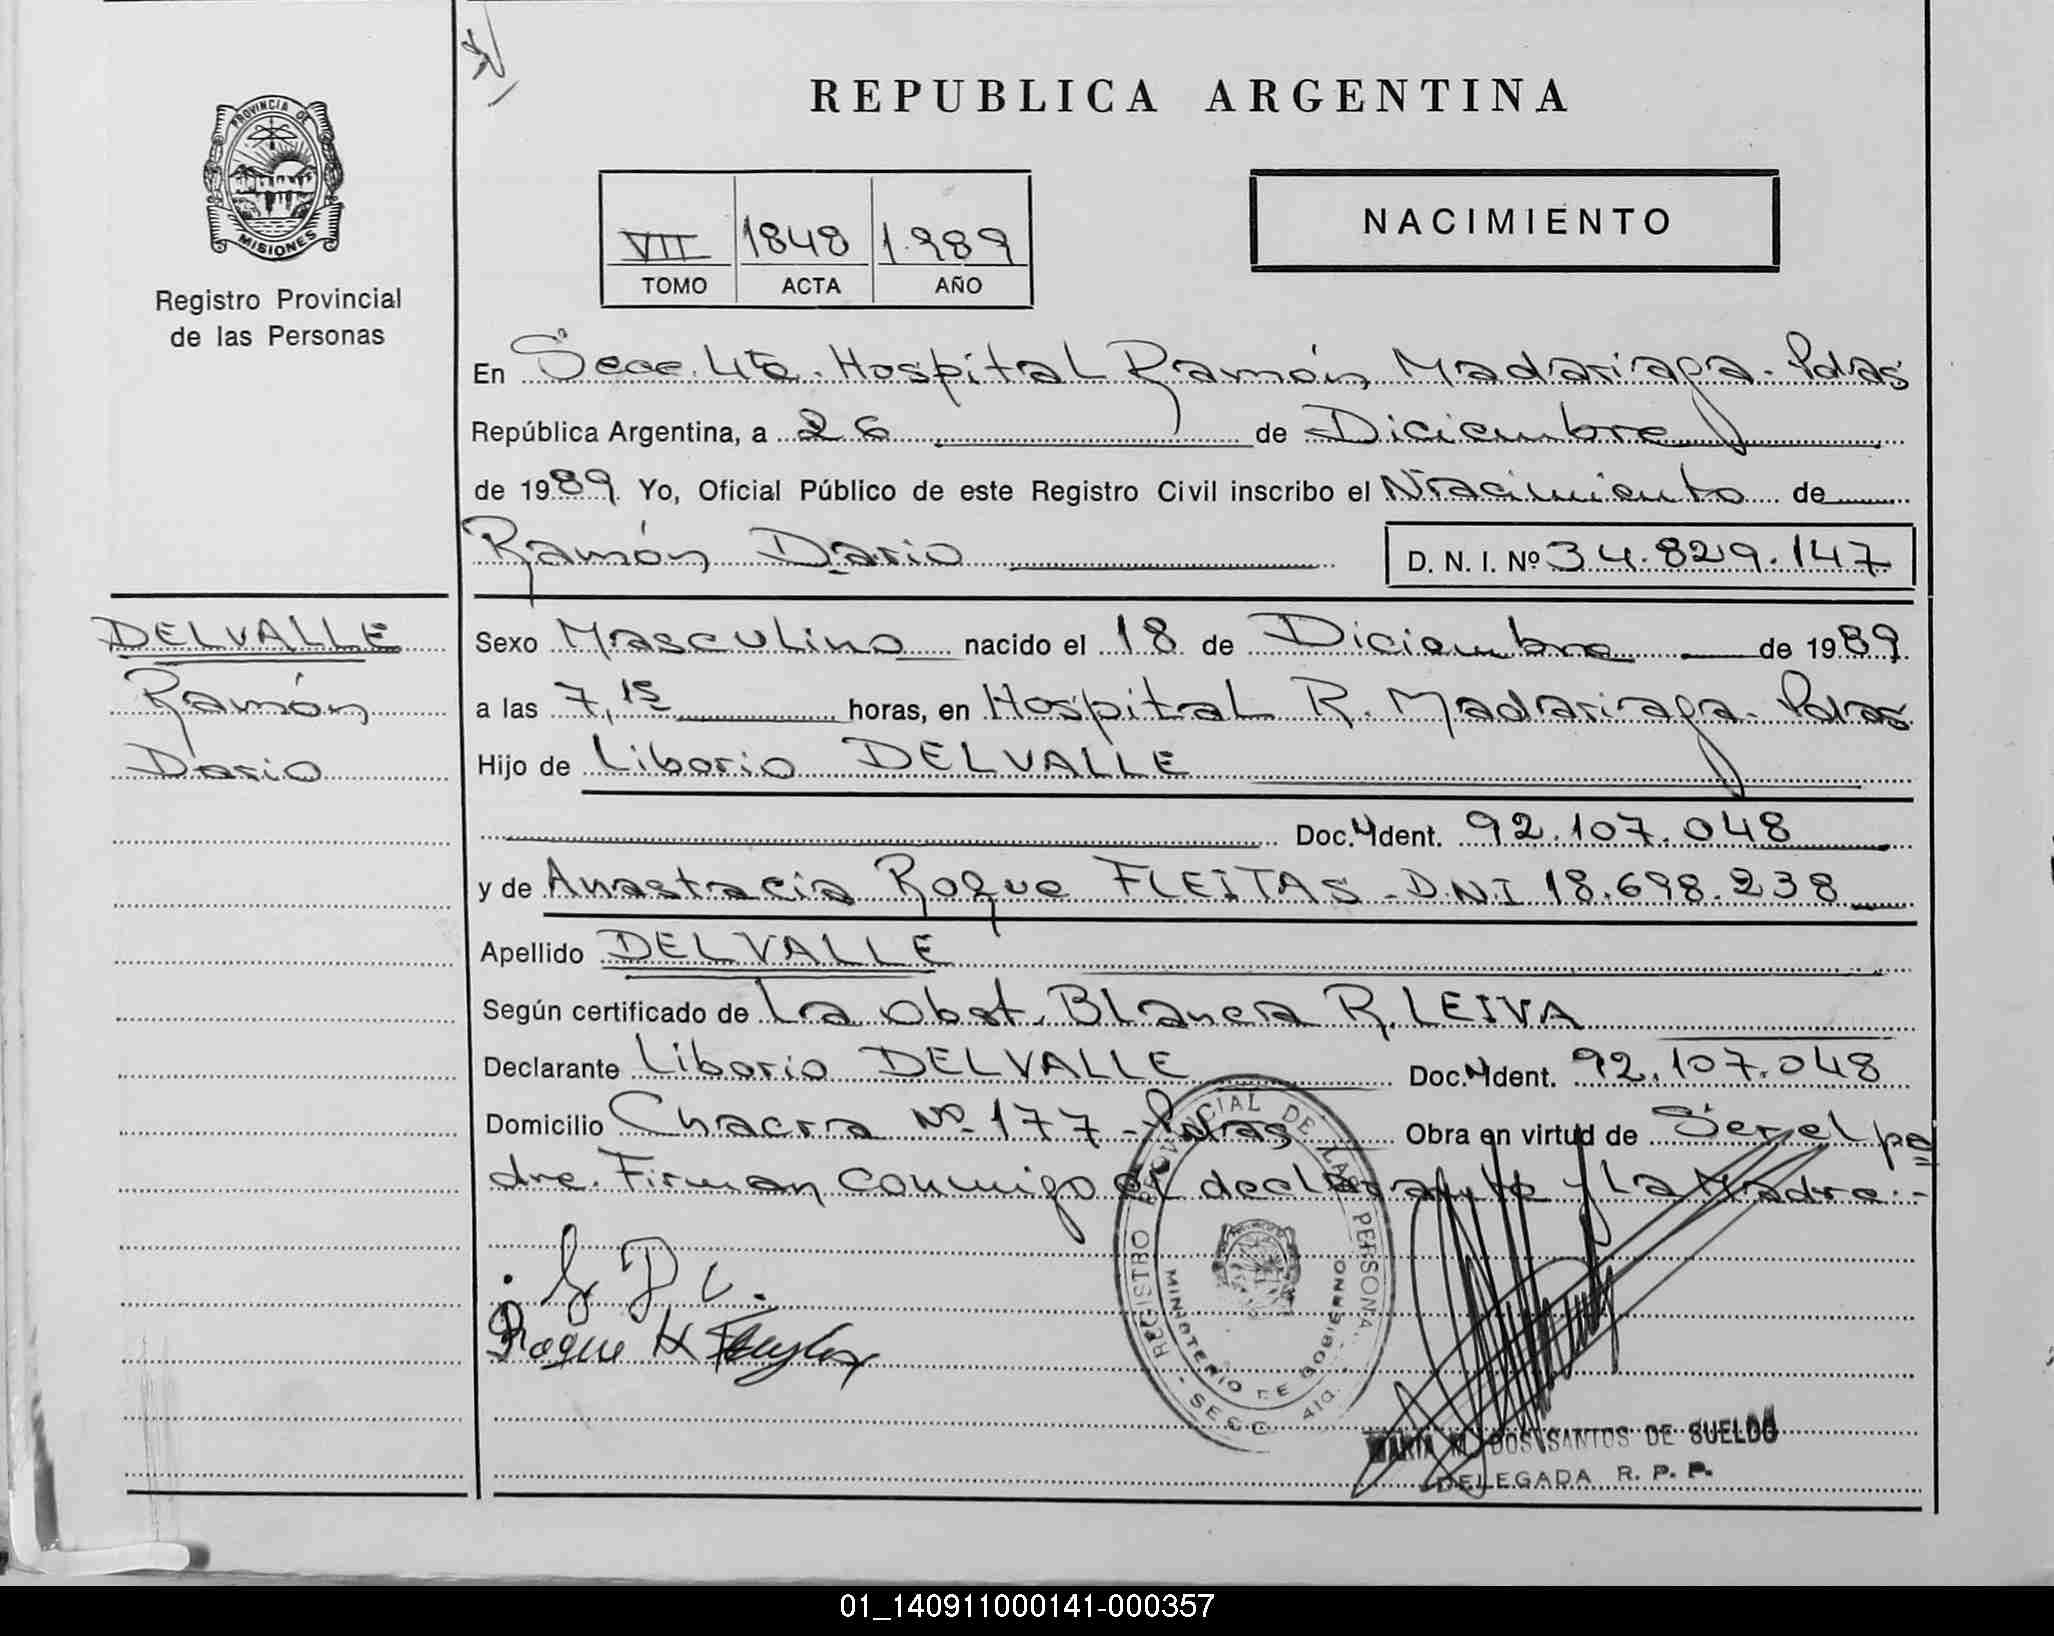 REPUBLICA ARGENTINA
PROVINCIA DE
MISIONES
Registro Provincial
de las Personas
VII 1848 1.989
TOMO ACTA AÑO
NACIMIENTO
En Secc. 4ta. Hospital Ramón Madariaga - Pdas
República Argentina, a 26 de Diciembre
de 1989. Yo, Oficial Público de este Registro Civil inscribo el Nacimiento de
Ramón Dario
D. N. I. Nº 34.829.147
DELVALLE
Ramón
Dario
Sexo Masculino nacido el 18 de Diciembre de 1989
a las 7,15 horas, en Hospital R. Madariaga - Pdas
Hijo de Liborio DELVALLE
Doc. Ident. 92.107.048
y de Anastacia Roque FLEITAS - D.N.I 18.698.238
Apellido DELVALLE
Según certificado de La Obst. Blanca R. LEIVA
Declarante Liborio DELVALLE Doc. Ident. 92.107.048
Domicilio Chacra Nº 177 - Pdas Obra en virtud de Ser el pa
dre. Firman conmigo el declarante y La Madre.-
REGISTRO PROVINCIAL DE LAS PERSONAS
MINISTERIO DE GOBIERNO
- SECC. 4ta.
Roque
MARIA DOS SANTOS DE SUELDO
DELEGADA R. P. P.
01_140911000141-000357